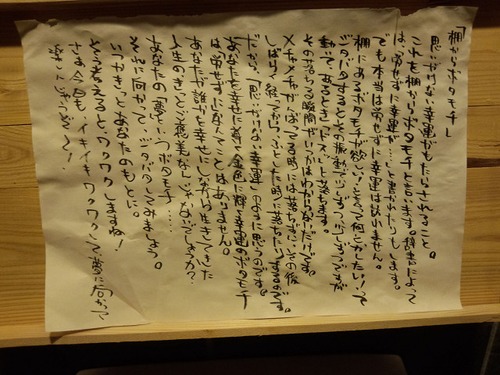 「棚からボタモチ」
思いがけない幸運がもたらされること。
これを棚からボタモチと言います。辞書によって
は、労せずに幸運が…と書かれたりもします。
でも本当は労せずに幸運は訪れません。
棚にあるボタモチが欲しい、とって何とかしたい！って
ジタバタするとその振動で少しづつ少しづつボタ
動いて、あるときにストンと落ちます。
その落ちる瞬間がいつかはわからないだけです。
メチャメチャがんばってる時には落ちずに、その後
しばらく経ってから、ふとした時に落ちたりするものです。
だから「思いがけない幸運」のように思うのです。
あなたを幸せに導く金色に輝く幸運のボタモチ
は労せずになんてことはありません。
あなたが誰かを幸せにしながら生きてきた
人生のきっとご褒美なんじゃないでしょうか…
あなたの夢というボタモチ……
それに向かって、ジタバタしてみましょう。
いつかきっとあなたのもとに。
そう考えると、ワクワクしますね！
さぁ今日も、イキイキワクワクして夢に向かって